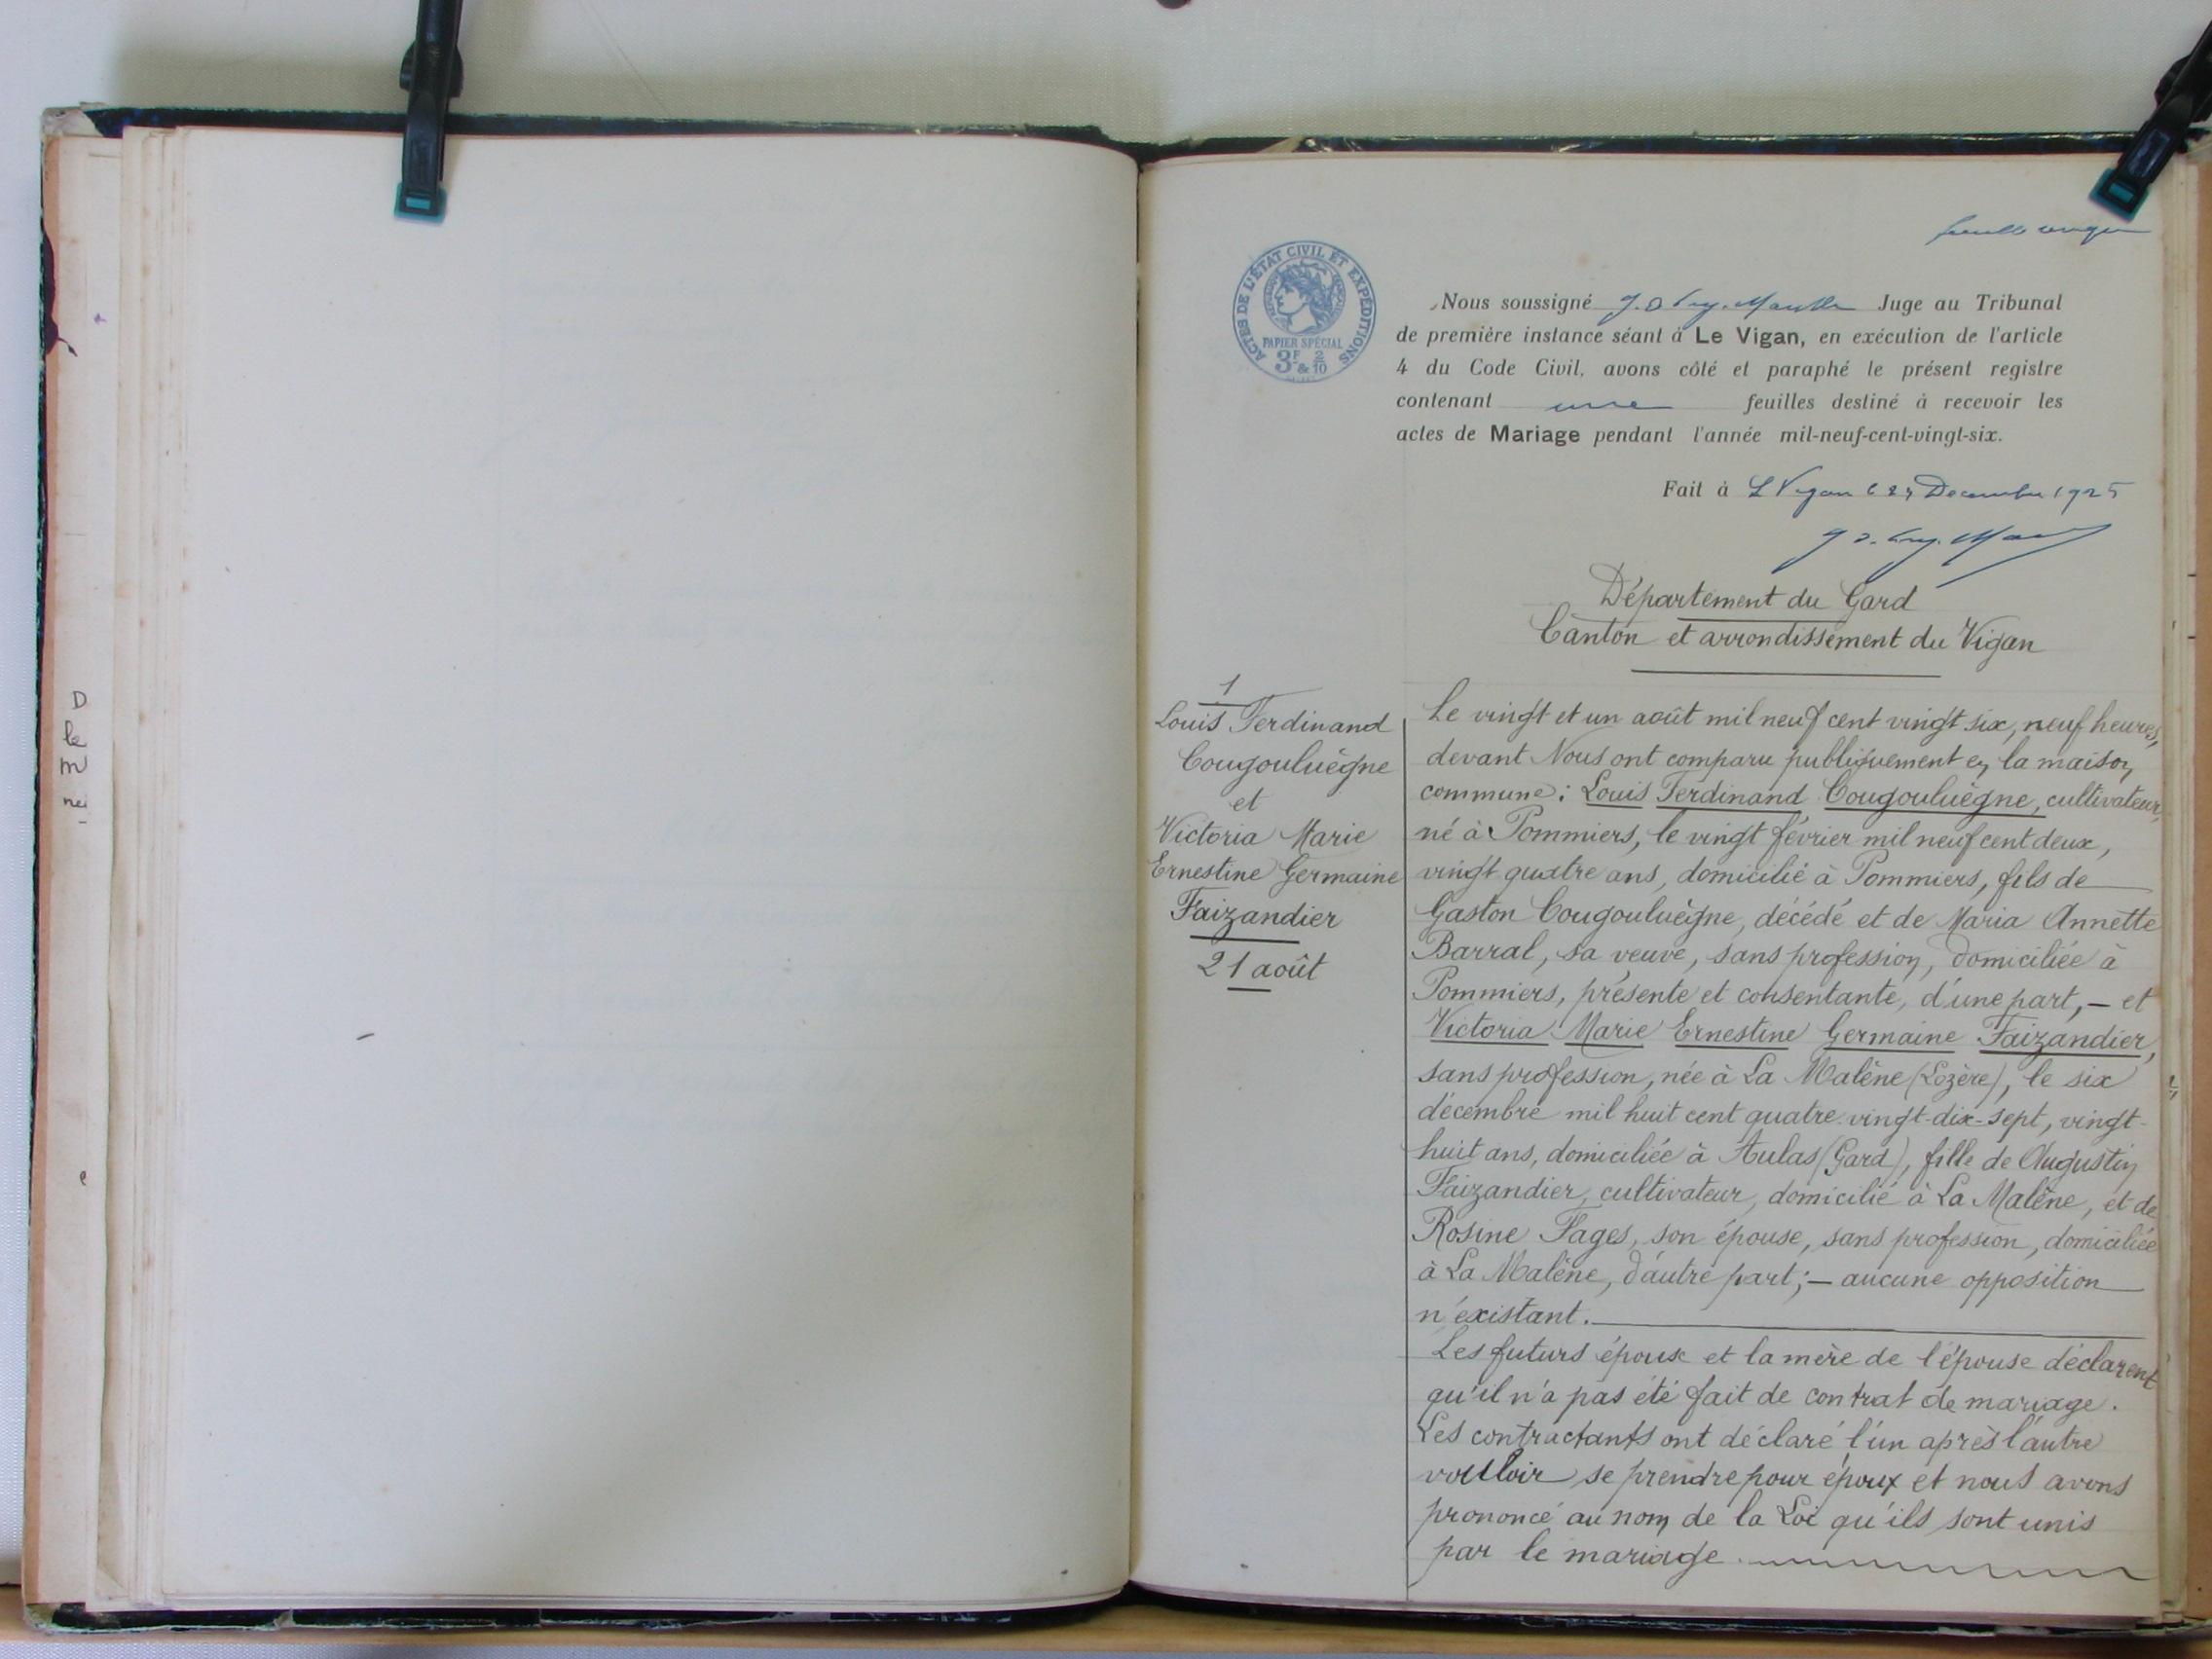 D
le
M
ne
ACTES DE L'ÉTAT CIVIL ET EXPÉDITIONS
PAPIER SPÉCIAL
3F & 2/10
Nous soussigné Juge au Tribunal
de première instance séant à Le Vigan, en exécution de l'article
4 du Code Civil, avons côté et paraphé le présent registre
contenant une feuilles destiné à recevoir les
actes de Mariage pendant l'année mil-neuf-cent-vingt-six.
Fait à Le Vigan le Decembre 1925
Département du Gard
Canton et arrondissement du Vigan
1
Louis Ferdinand
Cougouluègne
et
Victoria Marie
Ernestine Germaine
Faizandier
21 août
Le vingt et un août mil neuf cent vingt six, neuf heures,
devant Nous ont comparu publiquement en la maison
commune: Louis Ferdinand Cougouluègne, cultivateur,
né à Pommiers, le vingt février mil neuf cent deux,
vingt quatre ans, domicilié à Pommiers, fils de
Gaston Cougouluègne, décédé et de Maria Annette
Barral, sa veuve, sans profession, domiciliée à
Pommiers, présente et consentante, d'une part, – et
Victoria Marie Ernestine Germaine Faizandier,
sans profession, née à La Malène (Lozère), le six
décembre mil huit cent quatre vingt-dix-sept, vingt-
huit ans, domiciliée à Aulas (Gard), fille de Augustin
Faizandier, cultivateur, domicilié à La Malène, et de
Rosine Fages, son épouse, sans profession, domiciliée
à La Malène, d'autre part; – aucune opposition
n'existant.
Les futurs époux et la mère de l'épouse déclarent
qu'il n'a pas été fait de contrat de mariage.
Les contractants ont déclaré l'un après l'autre
vouloir se prendre pour époux et nous avons
prononcé au nom de la Loi qu'ils sont unis
par le mariage.